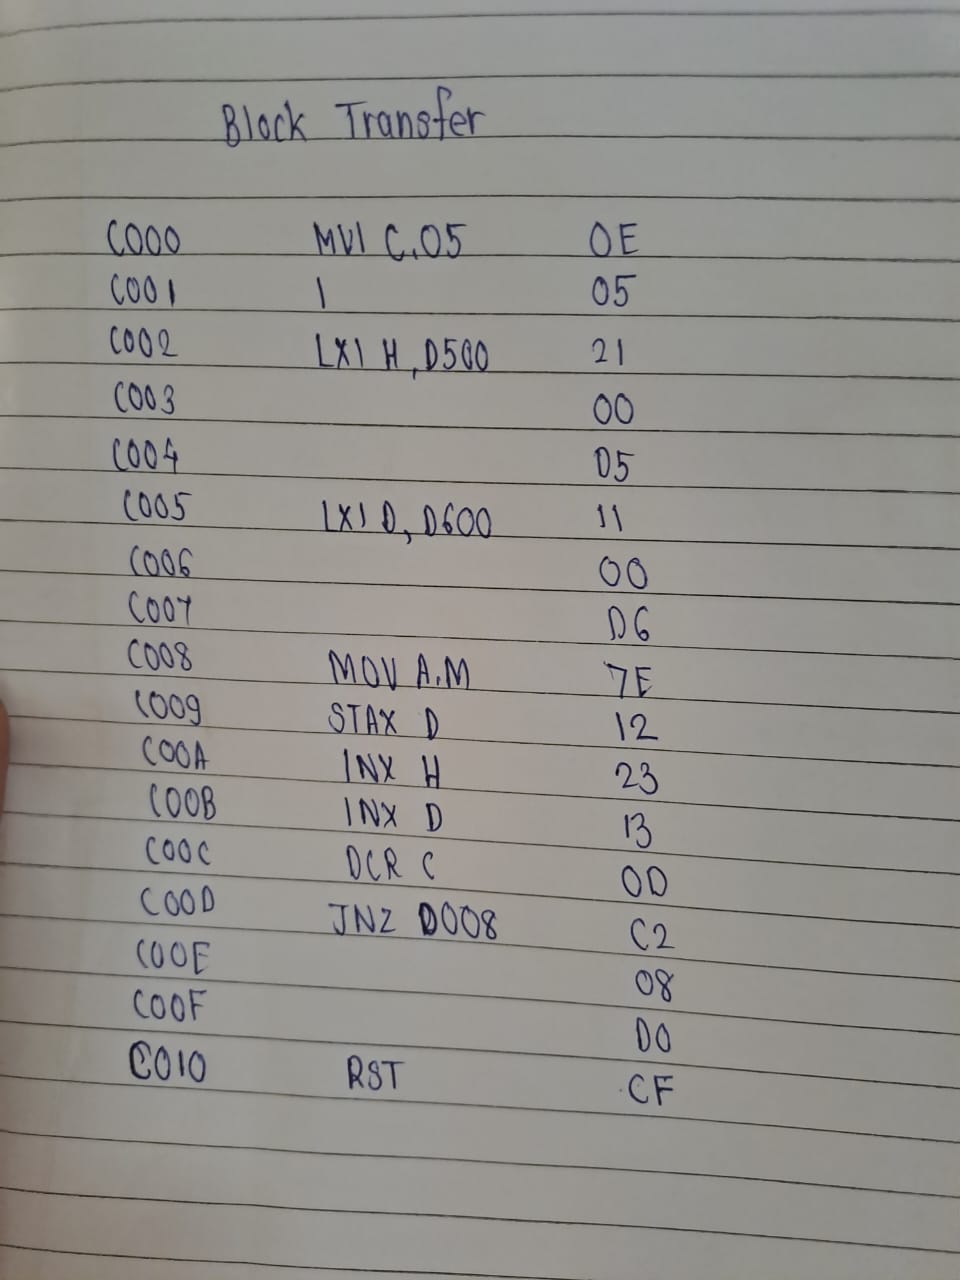 Block Transfer
C000 MVI C,05 0E
C001 | 05
C002 LXI H,D500 21
C003 00
C004 D5
C005 LXI D,D600 11
C006 00
C007 D6
C008 MOV A,M 7E
C009 STAX D 12
C00A INX H 23
C00B INX D 13
C00C DCR C 0D
C00D JNZ D008 C2
C00E 08
C00F D0
C010 RST CF